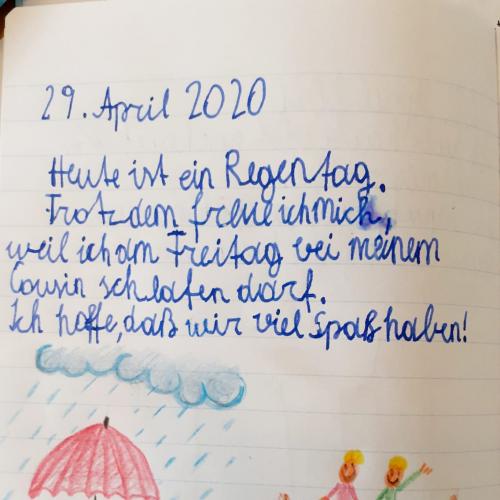 29. April 2020
Heute ist ein Regentag.
Trotzdem freue ich mich,
weil ich am Freitag bei meinem
Cousin schlafen darf.
Ich hoffe, daß wir viel Spaß haben!